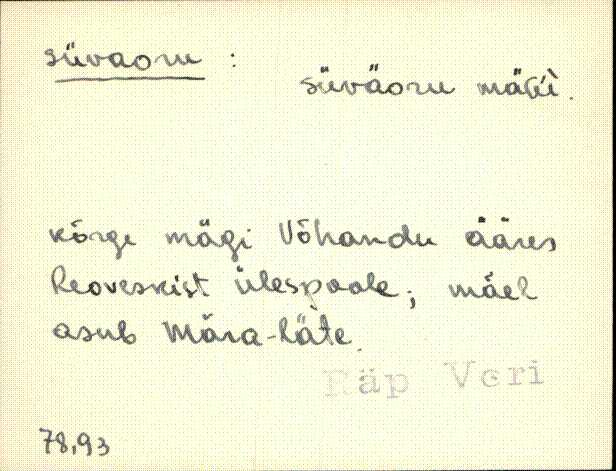 süvaoru :
süväoru mäǵi.
kõrge mägi Võhandu ääres
Leoveskist ülespoole; mäel
asub Mära-läte.
Räp Veri
78,93